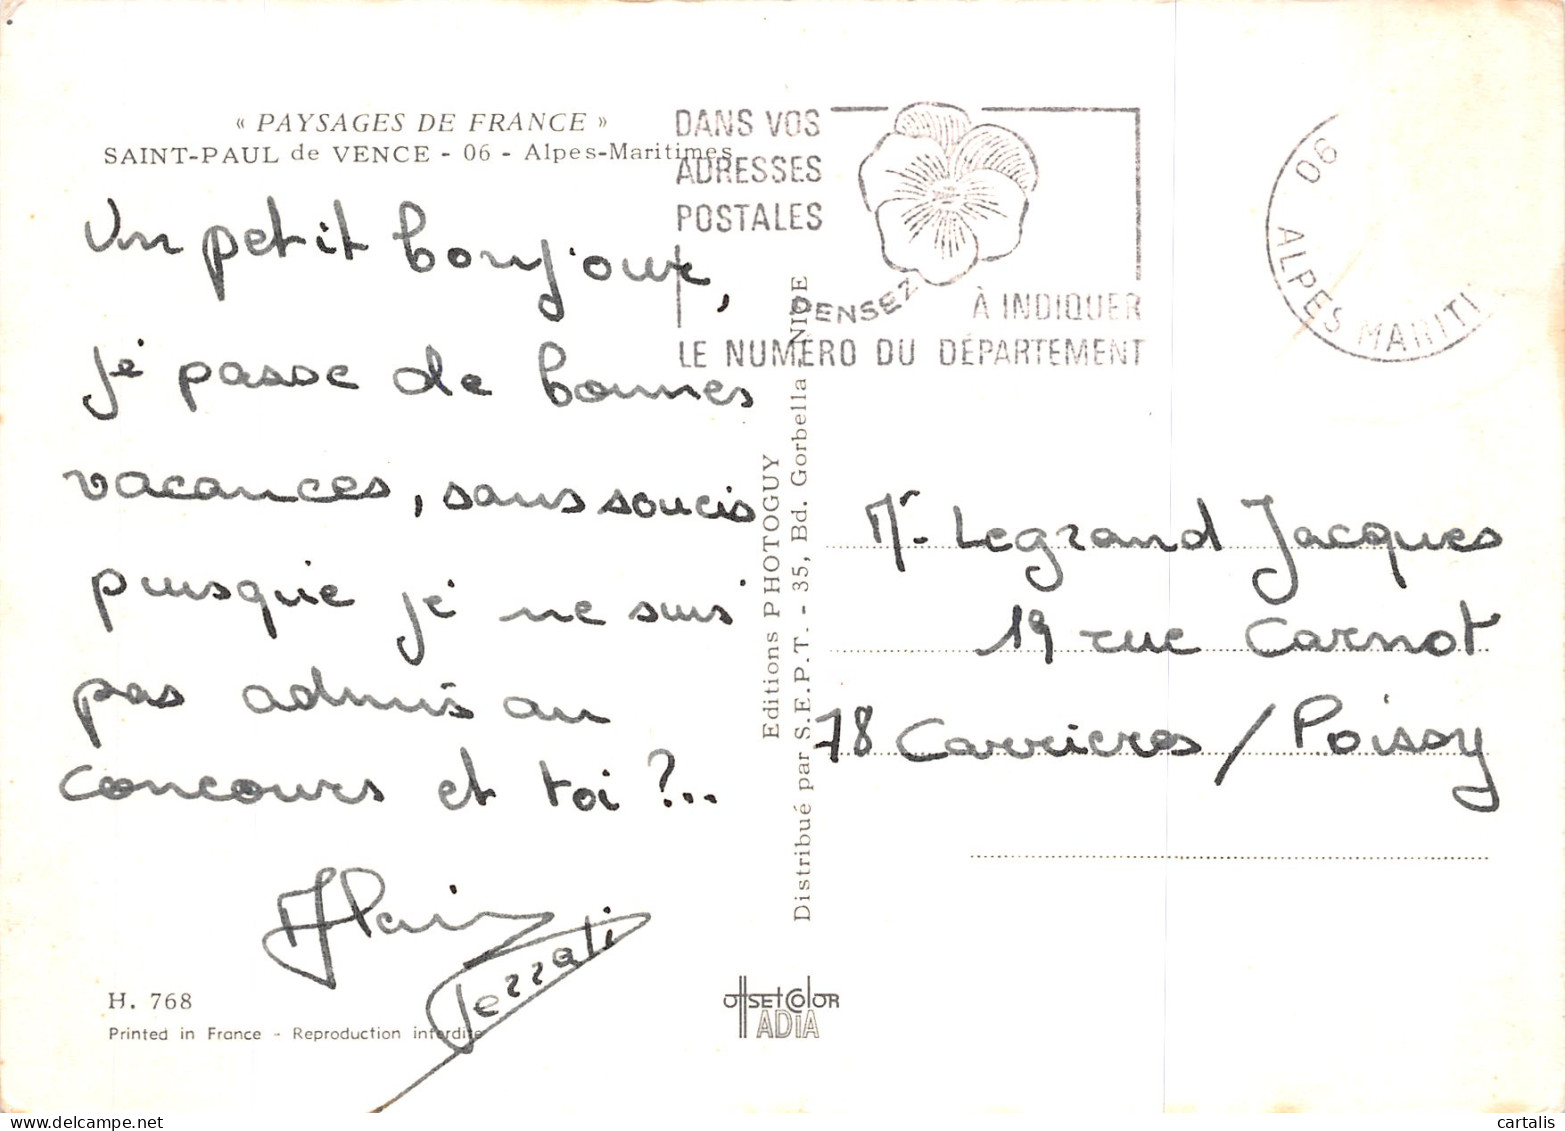 « PAYSAGES DE FRANCE »
SAINT-PAUL de VENCE - 06 - Alpes-Maritimes
Un petit bonjour,
je passe de bonnes
vacances, sans soucis
puisque je ne suis
pas admis au
concours et toi ?...
Alain
H. 768
Printed in France - Reproduction interdite
DANS VOS
ADRESSES
POSTALES
PENSEZ
À INDIQUER
LE NUMÉRO DU DÉPARTEMENT
06
ALPES MARITI
Editions PHOTOGUY
Distribué par S.E.P.T. - 35, Bd. Gorbella - NICE
Mr Legrand Jacques
19 rue Carnot
78 Carrieres / Poissy
OFFSET COLOR
ADIA
cartalis